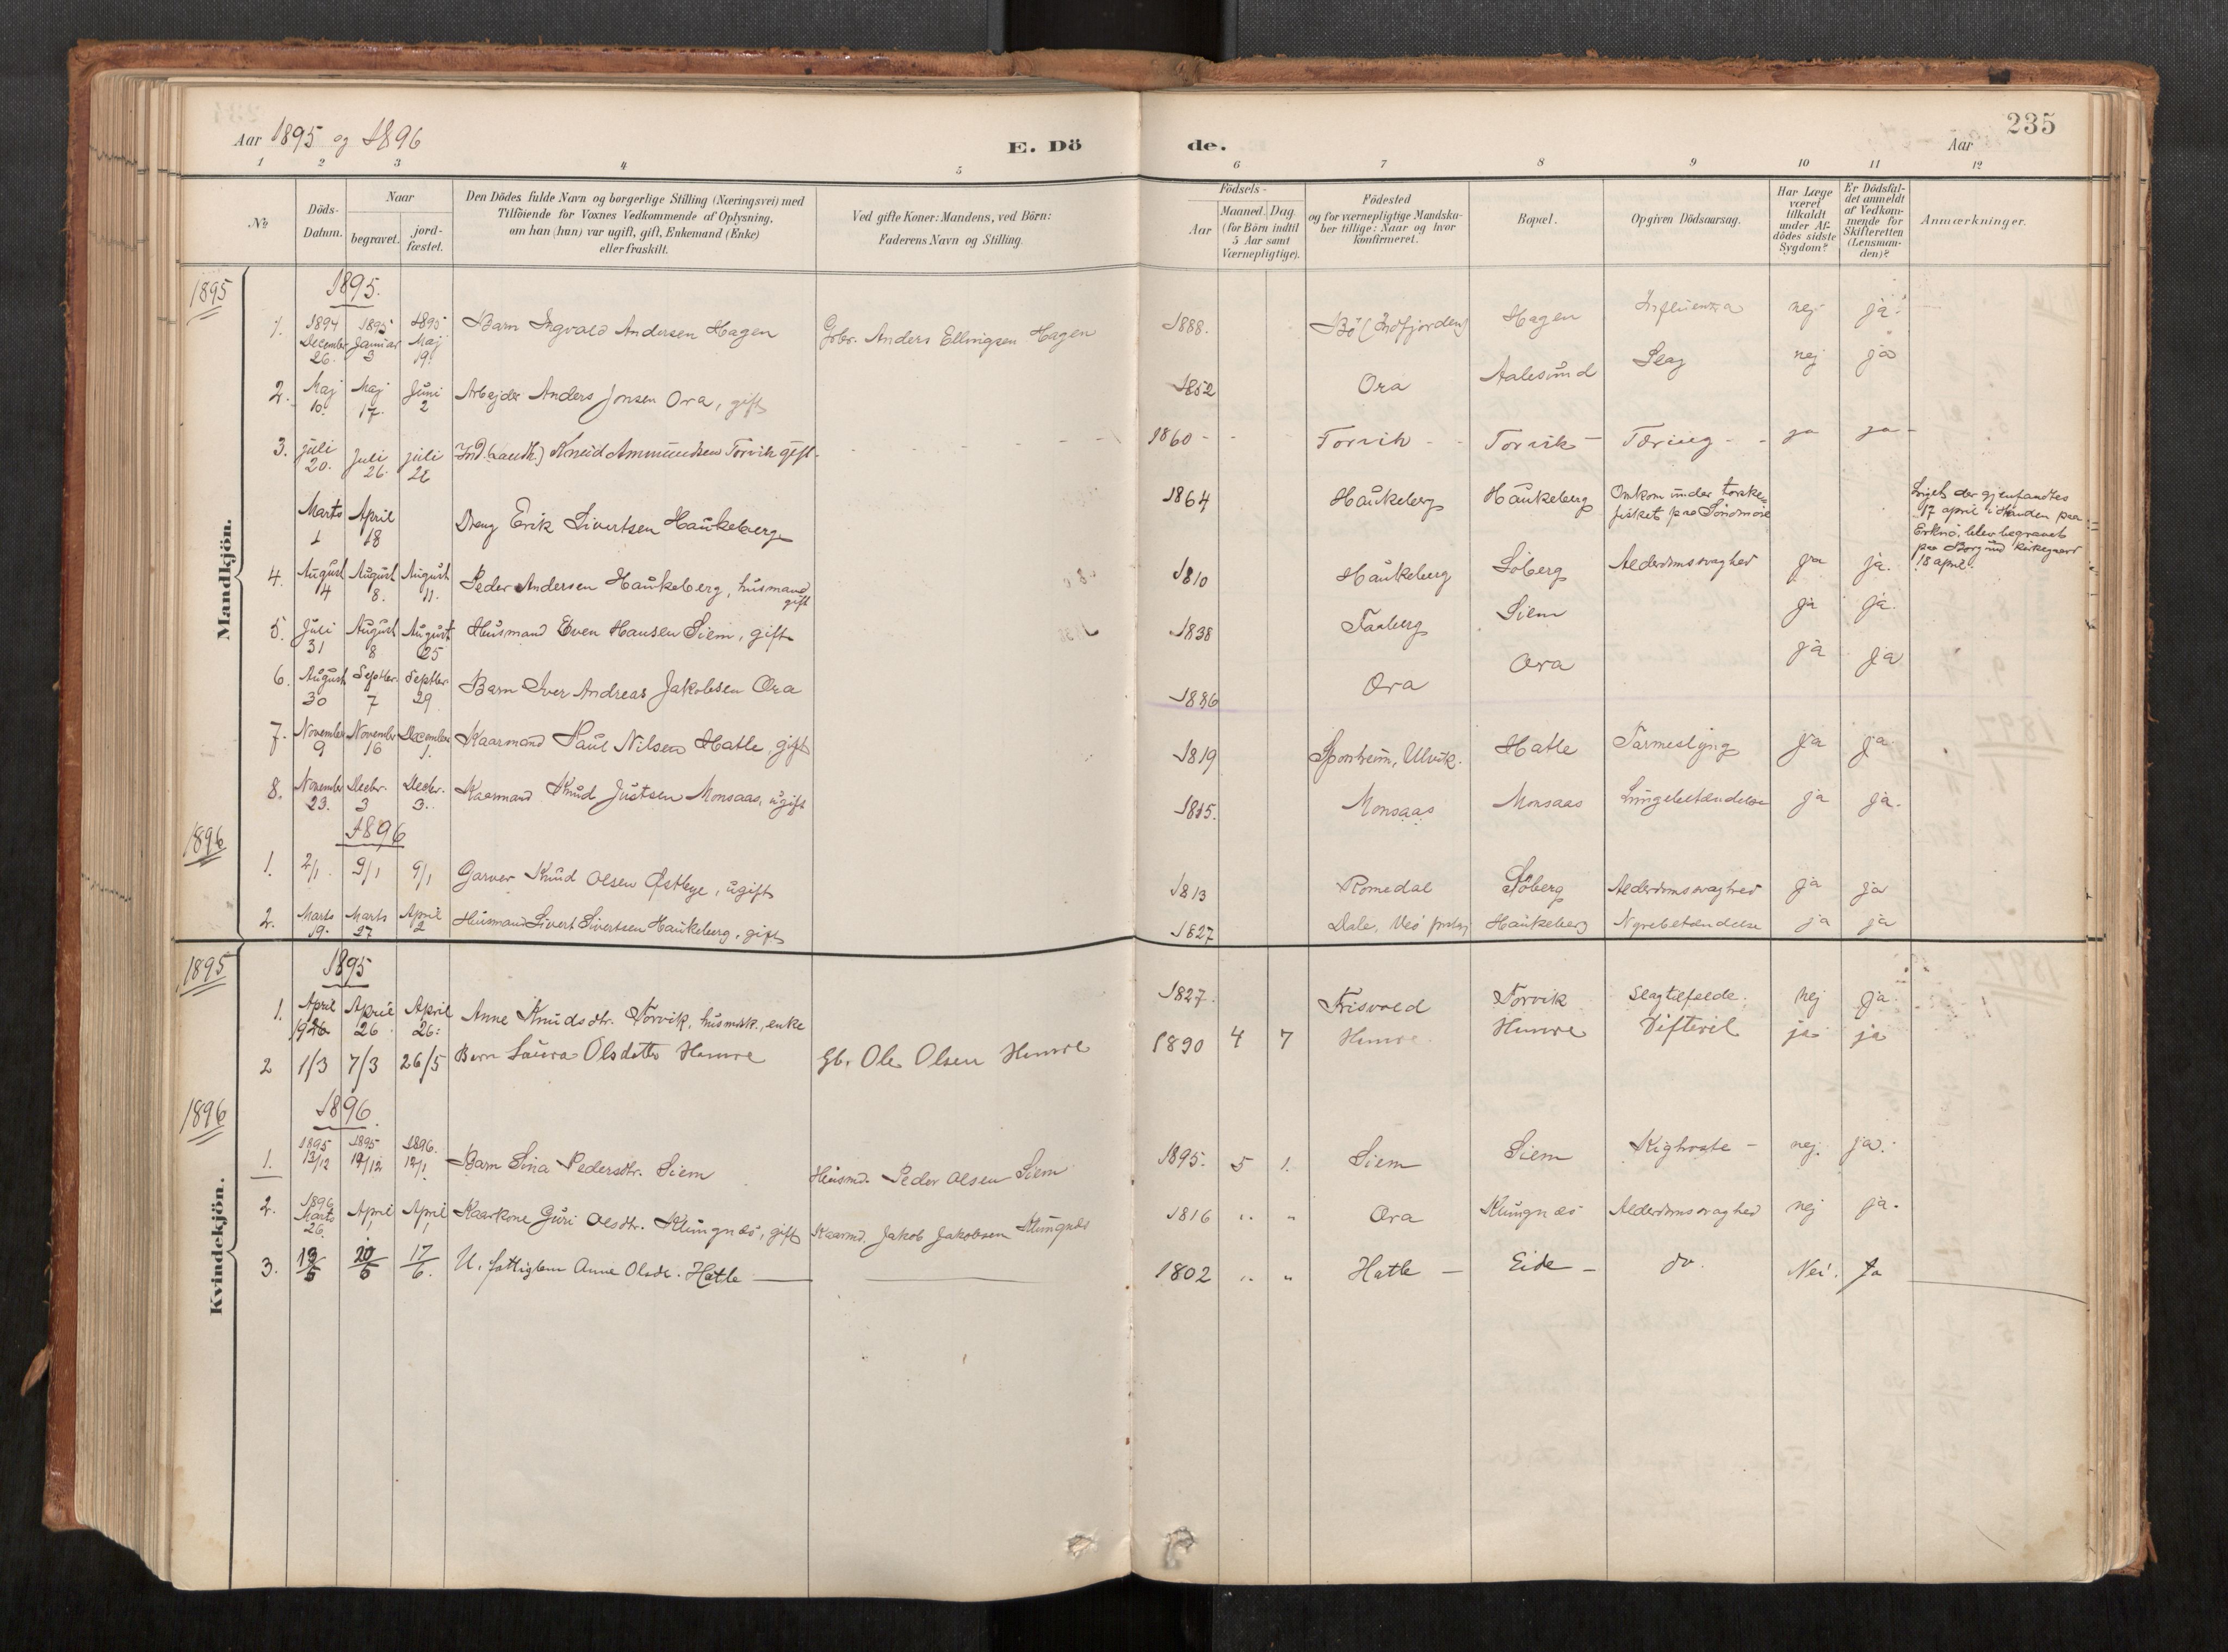 Aar 1895 og 1896
E. Döde.
Aar
235
1 2 3 4 5 6 7 8 9 10 11 12
No.
Döds-Datum.
Naar
begravet.
jord-fæstet.
Den Dödes fulde Navn og borgerlige Stilling (Næringsvei) med
Tilföiende for Voxnes Vedkommende af Oplysning,
om han (hun) var ugift, gift, Enkemand (Enke)
eller fraskilt.
Ved gifte Koner: Mandens, ved Börn:
Faderens Navn og Stilling.
Födsels-
Aar
Maaned. Dag.
(for Börn indtil
5 Aar samt
Værnepligtige).
Födested
og for værnepligtige Mandska-
ber tillige: Naar og hvor
konfirmeret.
Bopæl.
Opgiven Dödsaarsag.
Har Læge
været
tilkaldt
under Af-
dödes sidste
Sygdom?
Er Dödsfal-
det anmeldt
af Vedkom-
mende for
Skifteretten
(Lensman-
den)?
Anmærkninger.
Mandkjön.
1895
1895.
1. 1894 December 26. 1895 Januar 3 1895 Maj 19. Barn Ingvald Andersen Hagen Gbr. Anders Ellingsen Hagen 1888. Bö (Indfjorden) Hagen Influenza nej ja.
2. Maj 10. Maj 17. Juni 2 Arbejder Anders Jonsen Ora, gift 1852 Ora Aalesund Slag nej ja
3. juli 20. Juli 26. juli 28 Knud Ammundsen Torvik gift. 1860 - - Torvik - Torvik - Tæring - - ja ja -
Marts 1 April 18 Dreng Erik Sivertsen Haukeberg 1864 Haukeberg Haukeberg Omkom under torske-
fisket paa Söndmöre
Liget der gjenfandtes
17 april i Stranden paa
Erknö, blev begravet
paa Borgund Kirkegaard
18 april.
4. August 4 August 8. August 11. Peder Andersen Haukeberg, husmand, gift 1810 Haukeberg Söberg Alderdomssvaghed ja ja.
5. Juli 31 August 8 August 25 Husmand Even Hansen Siem, gift 1838 Faaberg Siem ja ja.
6. August 30 Septbr. 7 Septbr. 29 Barn Iver Andreas Jakobsen Ora 1886 Ora Ora ja ja
7. November 9 November 16 December 1. Kaarmand Paul Nilsen Hatle, gift 1819 Sponheim, Ulvik. Hatle Tarmeslyng ja ja.
8. November 23. Decbr. 3 Decbr. 3. Kaarmand Knud Justsen Monsaas, ugift 1815. Monsaas Monsaas Lungebetændelse ja ja.
1896
1896
1. 2/1. 9/1 9/1 Garver Knud Olsen Østbye, ugift 1813 Romedal Söberg Alderdomssvaghed ja ja
2. Marts 19. Marts 27 April 2 Husmand Sivert Sivertsen Haukeberg, gift 1827 Dale, Veö Haukeberg Nyrebetændelse ja ja
Kvindekjön.
1895
1895
1. April April 26 April 26. Anne Knudsdtr. Torvik, husmsk., enke 1827. Frisvold Torvik Slagtilfælde. Nej ja.
2 1/3 7/3 26/5 Barn Laura Olsdatter Hemre Gbr. Ole Olsen Hemre 1890 4 7 Hemre. Hemre Difterit ja ja
1896
1896.
1. 1895 13/12 1895 19/12 1896. 12/1. Barn Sina Pedersdtr. Siem Husmd. Peder Olsen Siem 1895. 5 1. Siem Siem Kighoste - nej. ja.
2. 1896 Marts 26. April 1 April 1 Kaarkone Guri Olsdtr. Klungnæs, gift Kaarmd. Jakob Jakobsen Klungnæs 1816 " " Ora Klungnæs Alderdomssvaghed nej ja.
3. 13/5 20/5 17/6. U. fattiglem Anne Olsdr. Hatle 1802 " " Hatle - Eide - do. Nei. Ja